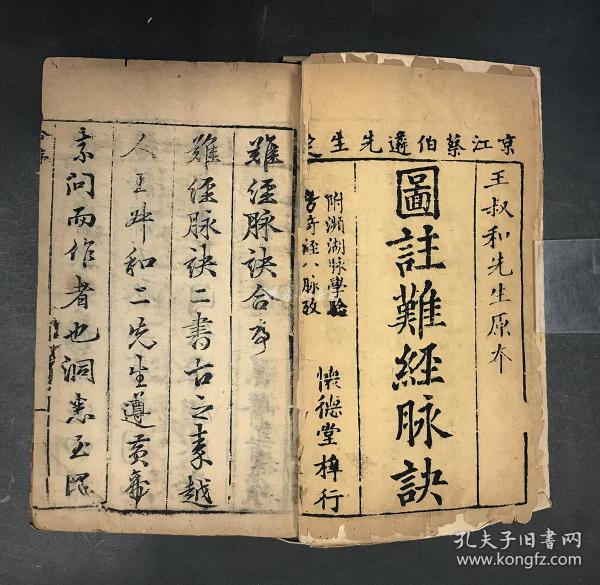 京江蔡伯遴先生定
王叔和先生原本
圖註難經脉訣
附瀕湖脉學
奇經八脉攷
懷德堂梓行
難經脉訣合序
難經脉訣二書古之秦越
人王叔和二先生遵黃帝
素問而作者也洞悉至隱
孔夫子旧书网
kongfz.com